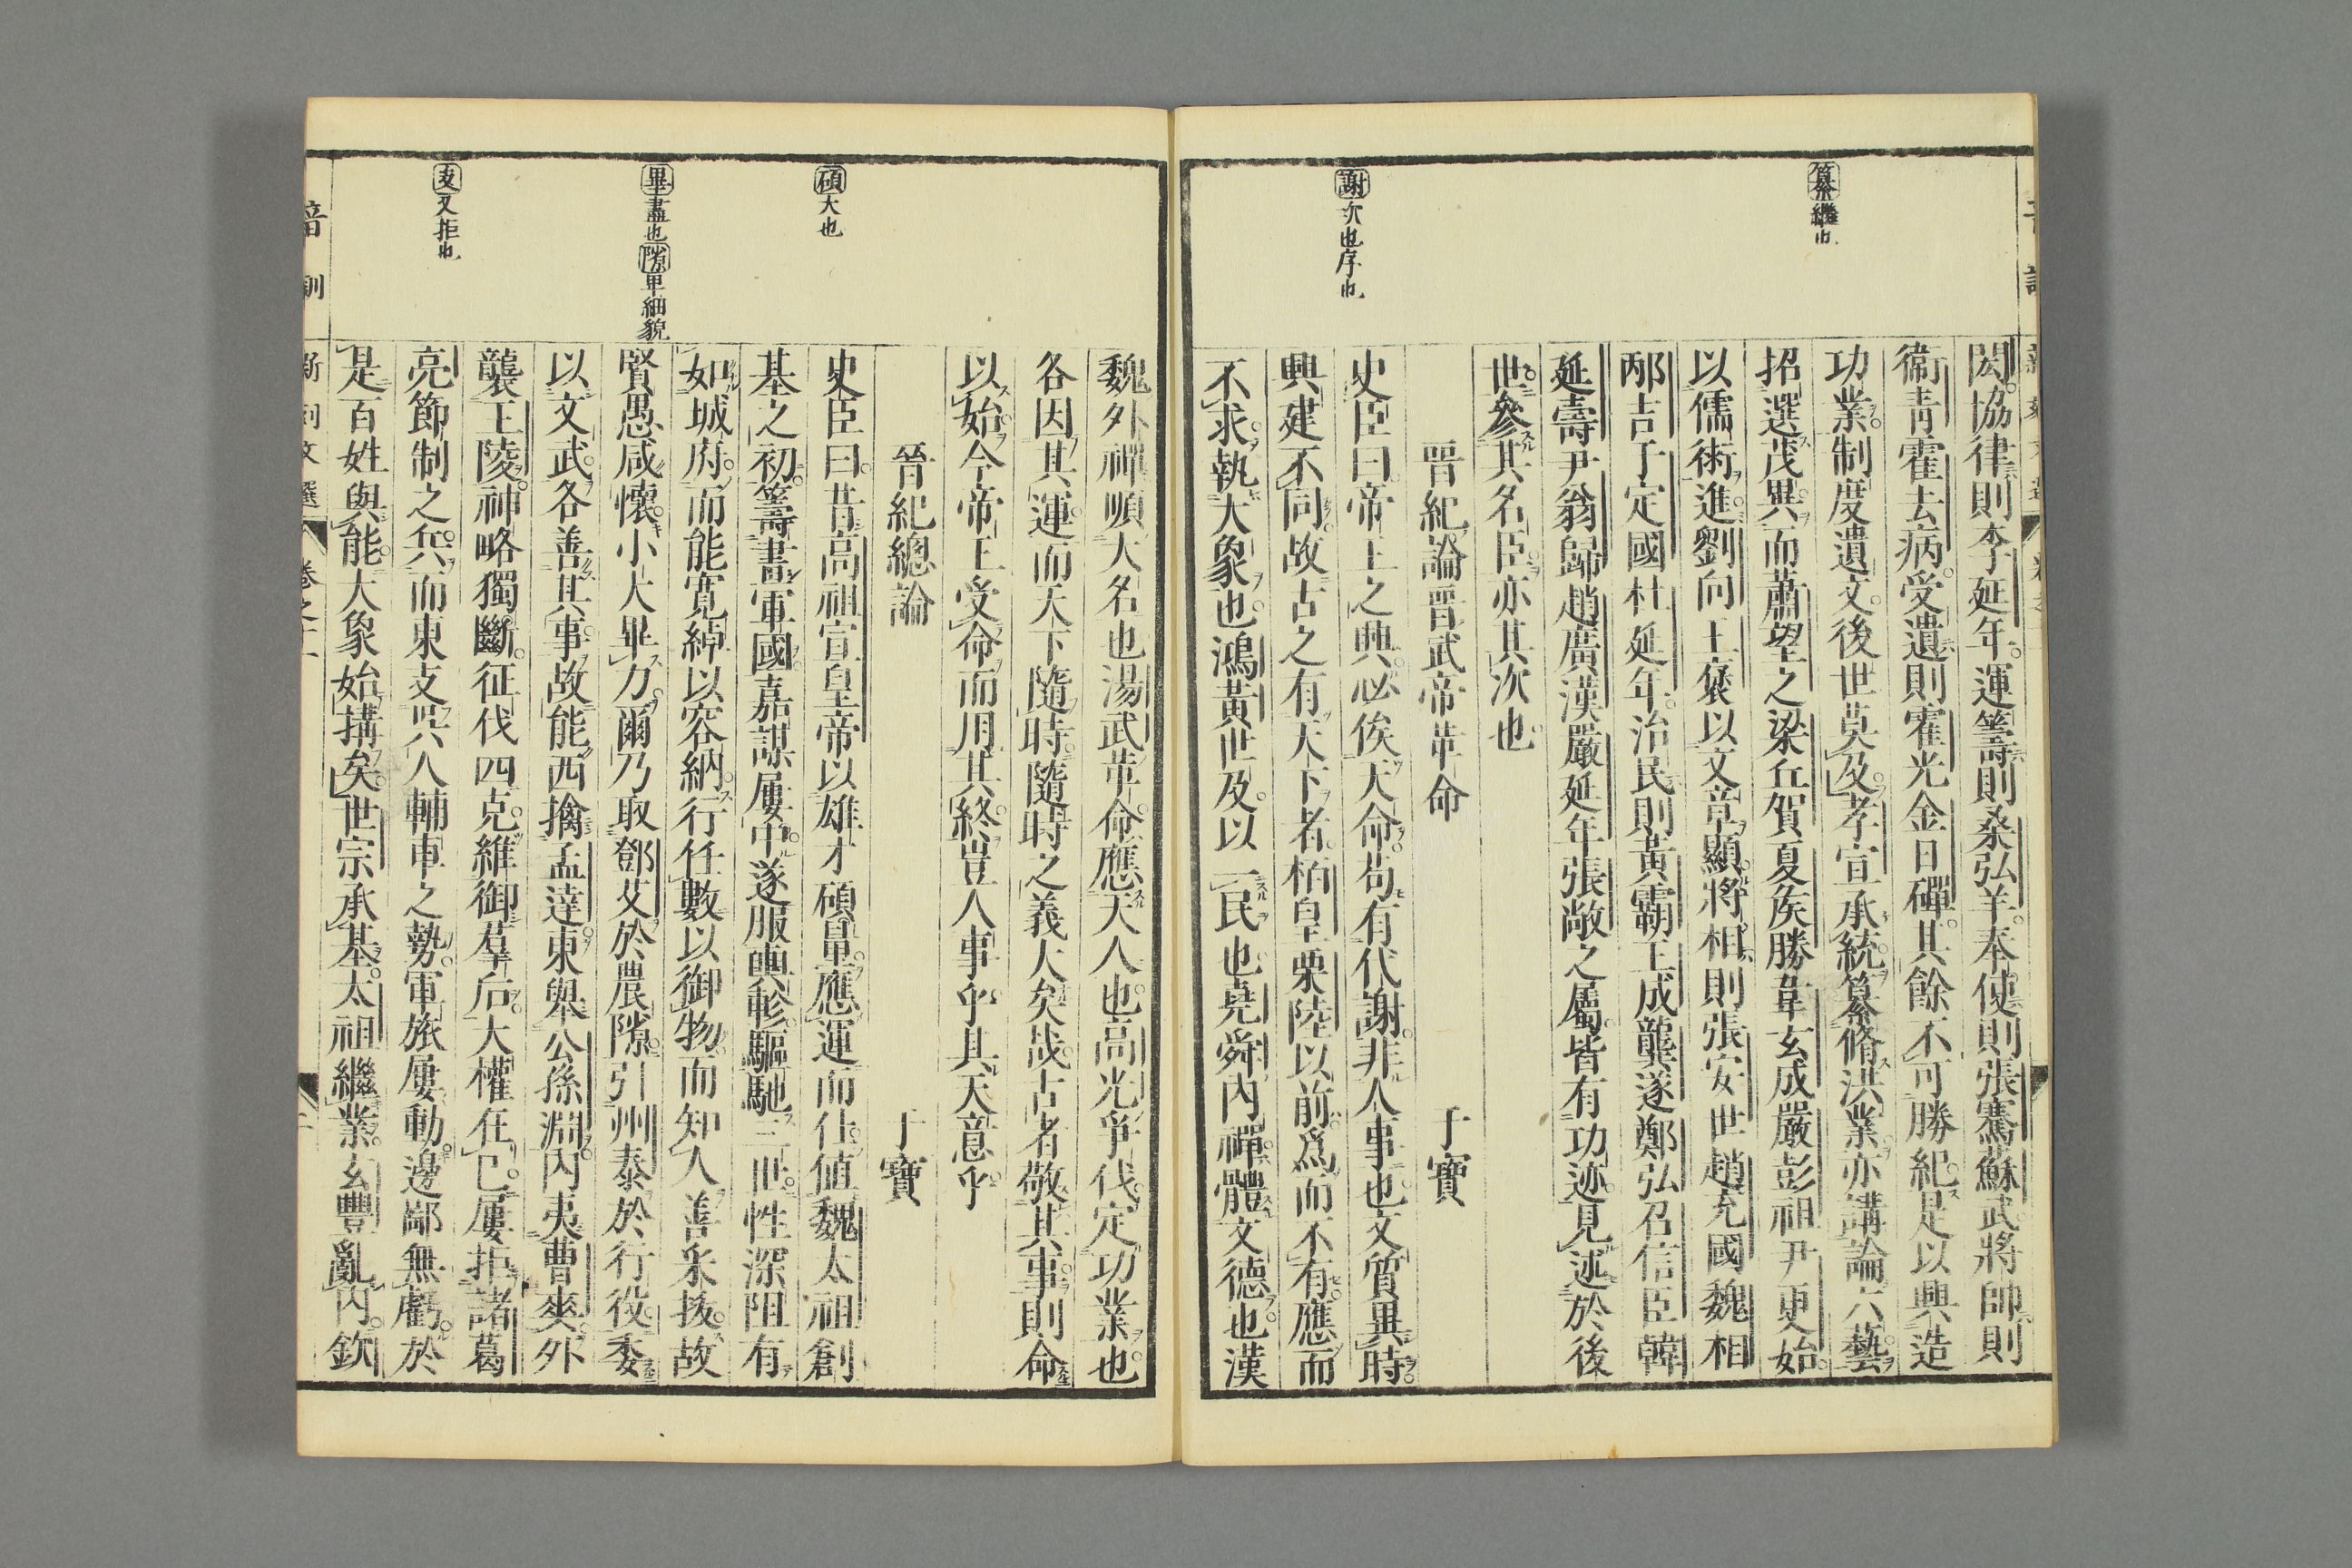 纂繼也
謝次也序也
閎協律則李延年運籌則桑弘羊奉使則張騫蘇武將帥則
衞青霍去病受遺則霍光金日磾其餘不可勝紀是以興造
功業制度遺文後世莫及孝宣承統纂脩洪業亦講論六藝
招選茂異而蕭望之梁丘賀夏侯勝韋玄成嚴彭祖尹更始
以儒術進劉向王褒以文章顯將相則張安世趙充國魏相
邴吉于定國杜延年治民則黃霸王成龔遂鄭弘召信臣韓
延壽尹翁歸趙廣漢嚴延年張敞之屬皆有功迹見述於後
世參其名臣亦其次也
晉紀論晉武帝革命 于寶
史臣曰帝王之興必俟天命苟有代謝非人事也文質異時
興建不同故古之有天下者栢皇栗陸以前爲而不有應而
不求執大象也鴻黃世及以一民也堯舜內禪體文德也漢
碩大也
畢盡也隙單細貌
支又拒也
魏外禪順大名也湯武革命應天人也高光爭伐定功業也
各因其運而天下隨時隨時之義大矣哉古者敬其事則命
以始今帝王受命而用其終豈人事乎其天意乎
晉紀總論 于寶
史臣曰昔高祖宣皇帝以雄才碩量應運而仕値魏太祖創
基之初籌畫軍國嘉謀屢中遂服輿軫驅馳三世性深阻有
如城府而能寬綽以容納行任數以御物而知人善采拔故
賢愚咸懷小大畢力爾乃取鄧艾於農隙引州泰於行役委
以文武各善其事故能西擒孟達東舉公孫淵內夷曹爽外
襲王陵神略獨斷征伐四克維御羣后大權在己屢拒諸葛
亮節制之兵而東支吳人輔車之勢軍旅屢動邊鄙無虧於
是百姓與能大象始搆矣世宗承基太祖繼業玄豐亂內欽
音訓 新刻文選 卷之十一